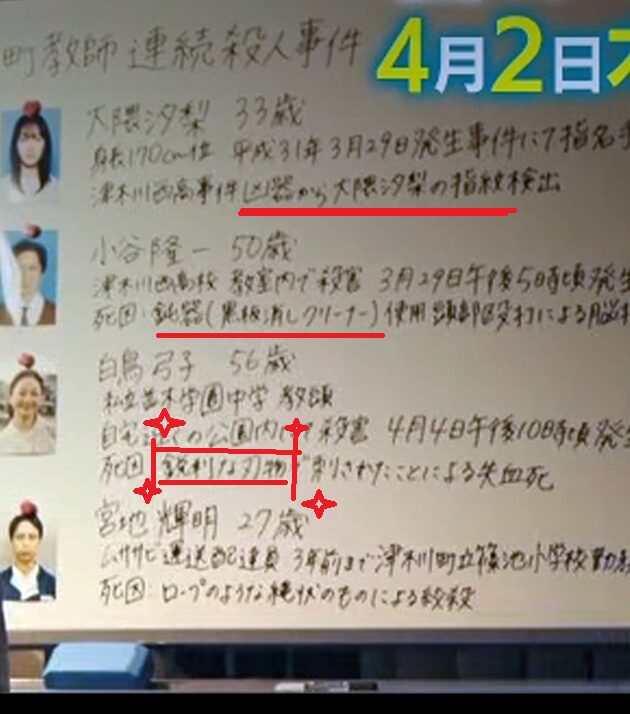 町教師 連続殺人事件
4月2日
大隈汐梨 33歳
身長170cm位 平成31年3月29日発生事件にて指名手
津木川西高事件 凶器から大隈汐梨の指紋検出
小谷隆一 50歳
津木川西高校 教室内で殺害 3月29日午後5時頃発生
死因:鈍器(黒板消しクリーナー)使用 頭部殴打による脳挫
白鳥弓子 56歳
私立並木学園中学 教頭
自宅近くの公園内にて殺害 4月4日午後10時頃発生
死因:鋭利な刃物で刺されたことによる失血死
宮地輝明 27歳
ムササビ運送配達員 3年前まで津木川町立篠池小学校勤務
死因:ロープのような縄状のものによる絞殺